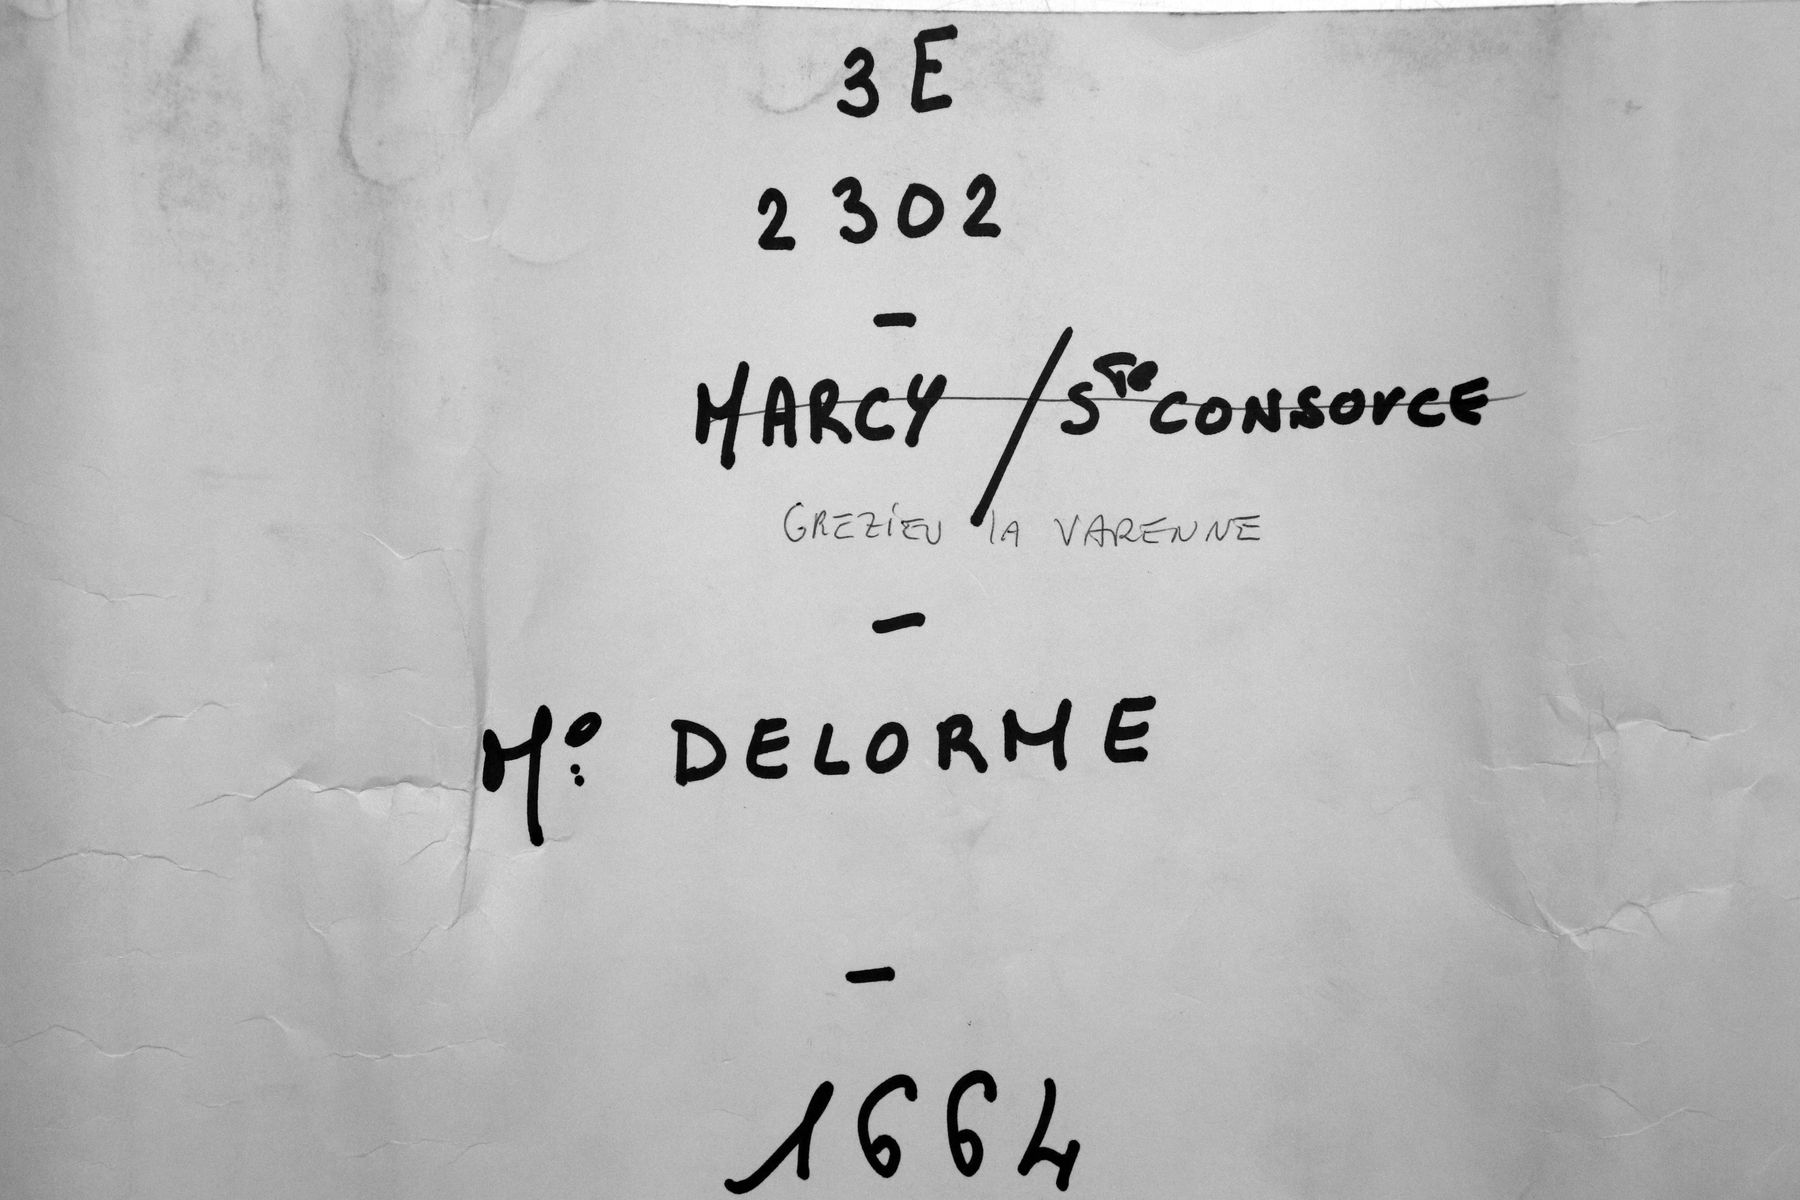 3E
2302
-
MARCY / Ste CONSORCE
GREZIEU la VARENNE
-
Me: DELORME
-
1664